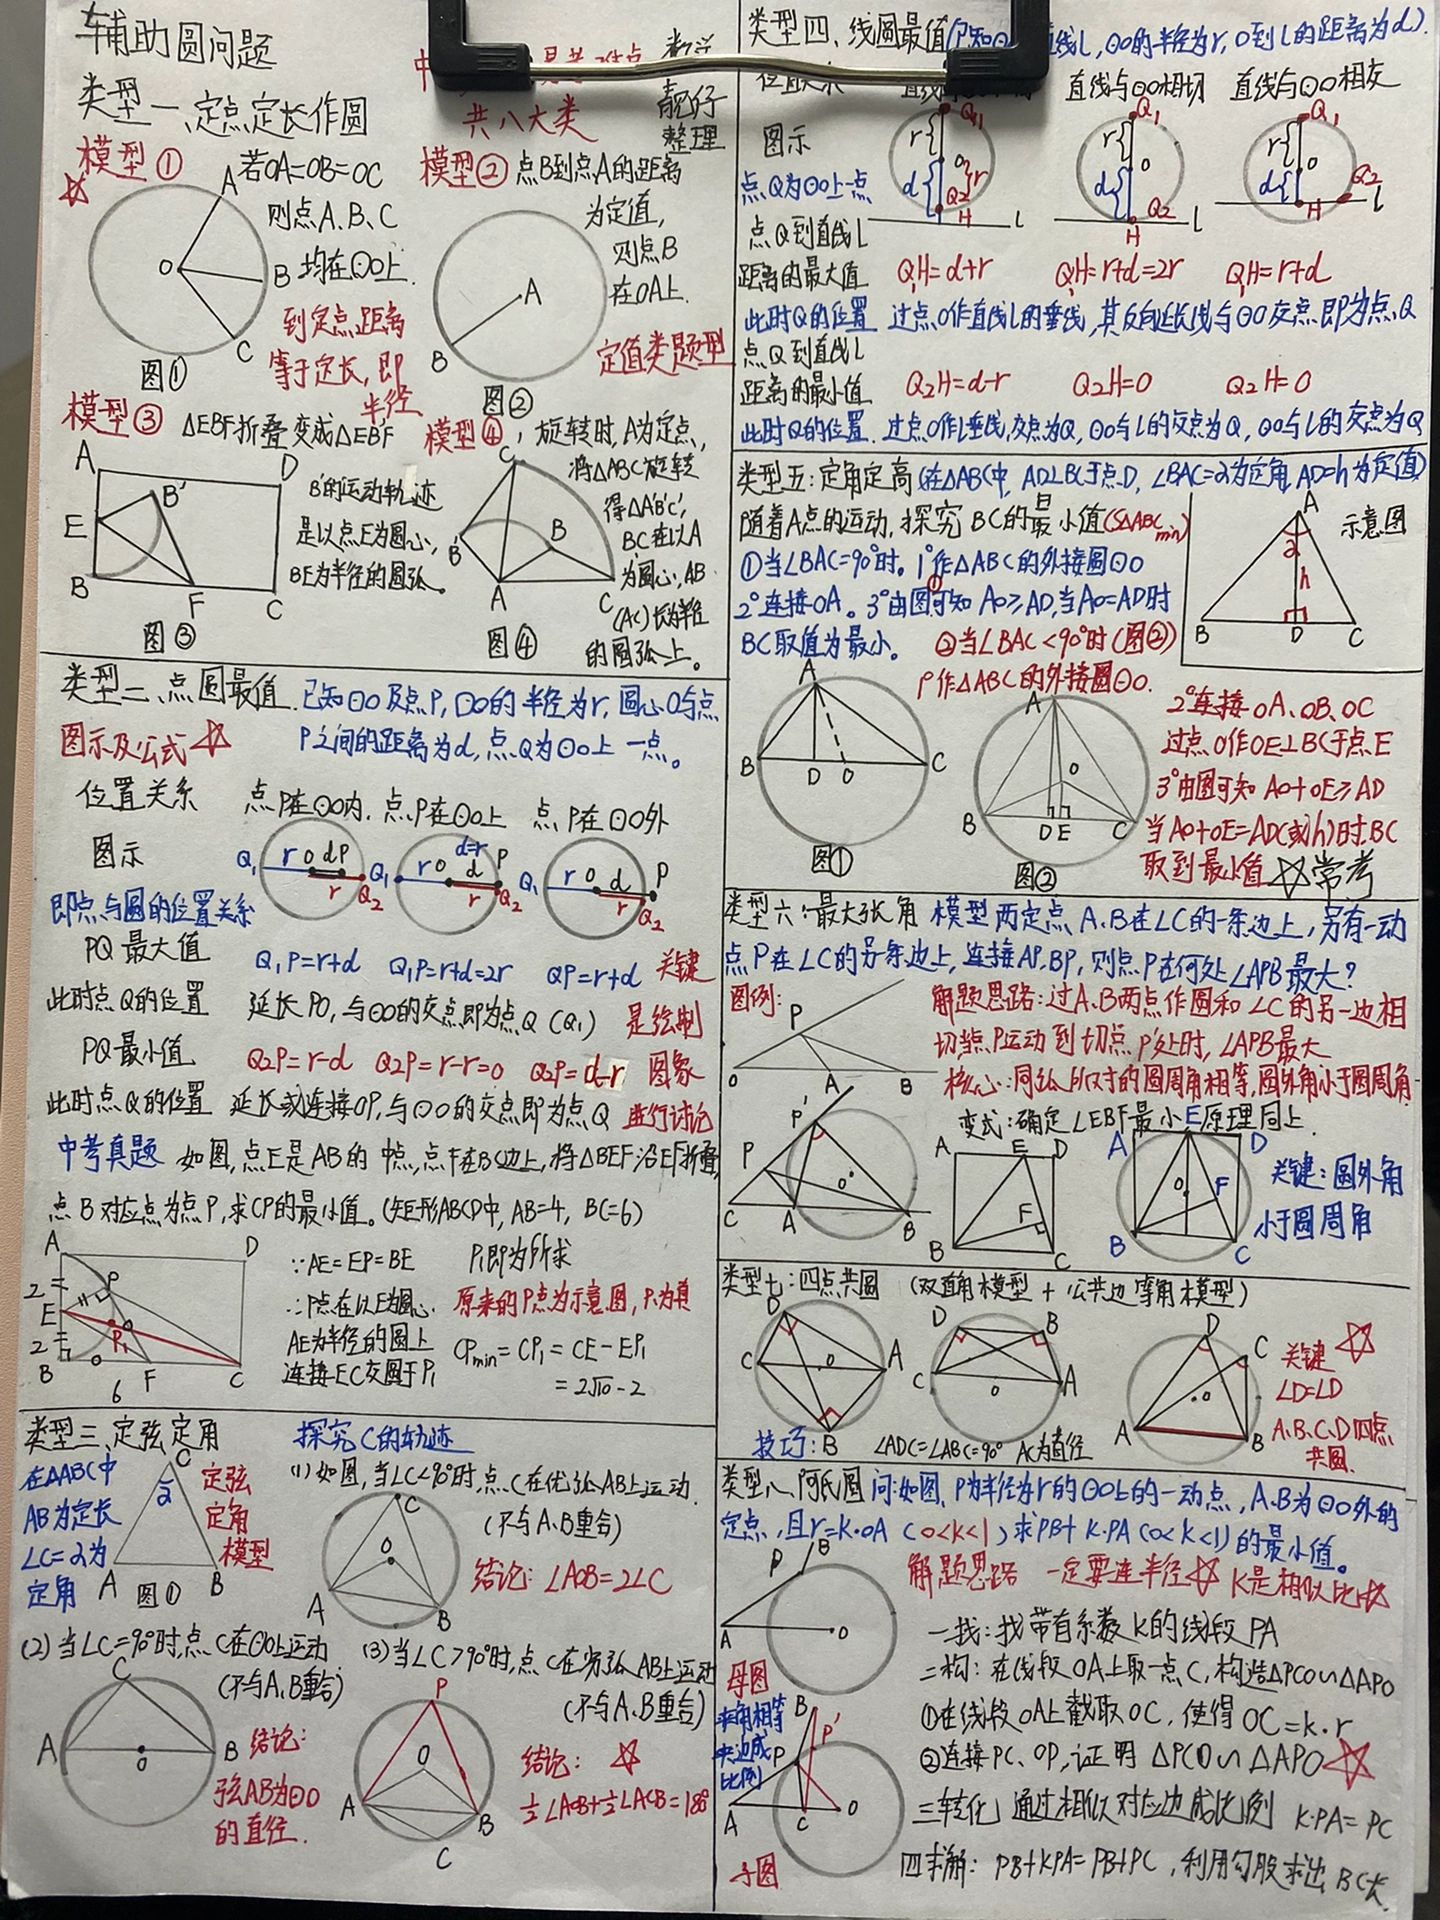 辅助圆问题
共八大类
靓仔
整理
类型一、定点定长作圆
模型①
若OA=OB=OC
则点A、B、C
均在⊙O上.
到定点距离
等于定长,即
半径
A
O
B
C
图①
模型② 点B到点A的距离
为定值,
则点B
在⊙A上.
定值类题型
A
B
图②
模型③ △EBF折叠变成△EB'F
B'的运动轨迹
是以点E为圆心,
BE为半径的圆弧。
A
D
B'
E
B
F
C
图③
模型④,旋转时,A为定点,
将△ABC旋转
得△A'B'C',
BC在以A
为圆心,AB
(AC)长为半径
的圆弧上。
C'
B'
B
A
C
图④
类型二、点圆最值 已知⊙O及点P,⊙O的半径为r,圆心O与点
P之间的距离为d,点Q为⊙O上一点。
图示及公式☆
位置关系 点P在⊙O内. 点P在⊙O上 点P在⊙O外
图示
Q₁ r O d P r Q₂
Q₁ r O d=r d P r Q₂
Q₁ r O d P r Q₂
即点与圆的位置关系
PQ最大值 Q₁P=r+d Q₁P=r+d=2r QP=r+d 关键
此时点Q的位置 延长PO,与⊙O的交点即为点Q(Q₁) 是绘制
PQ最小值 Q₂P=r-d Q₂P=r-r=0 Q₂P=d-r 图象
此时点Q的位置 延长或连接OP,与⊙O的交点即为点Q 进行讨论
中考真题 如图,点E是AB的中点,点F在BC边上,将△BEF沿EF折叠,
点B对应点为点P,求CP的最小值。(矩形ABCD中,AB=4, BC=6)
A
D
2
E
P
H
P₁
2
B
6
F
C
∵AE=EP=BE P₁即为所求
∴P点在以E为圆心. 原来的P点为示意图,P₁为真
AE为半径的圆上 CPmin=CP₁=CE-EP₁
连接EC交圆于P₁ =2√10-2
类型三、定弦定角 探究C的轨迹
在△ABC中
AB为定长
∠C=α为
定角
C
α
A
B
图①
定弦
定角
模型
(1)如图,当∠C<90°时,点C在优弧AB上运动.
(不与A、B重合)
结论: ∠AOB=2∠C
C
O
A
B
(2)当∠C=90°时,点C在⊙O上运动
(不与A、B重合)
C
A
O
B
结论:
弦AB为⊙O
的直径.
(3)当∠C>90°时,点C在劣弧AB上运动
(不与A、B重合)
P
O
A
B
C
结论: ☆
½∠AOB+½∠ACB=180°
类型四、线圆最值
直线l,⊙O的半径为r,O到l的距离为d).
直线与⊙O相切 直线与⊙O相交
图示
点Q为⊙O上一点
Q₁ r O r d Q₂ H l
Q₁ r O d Q₂ H l
Q₁ r O d Q₂ H l
点Q到直线l
距离的最大值 Q₁H=d+r Q₁H=r+d=2r Q₁H=r+d
此时Q的位置 过点O作直线l的垂线,其反向延长线与⊙O交点即为点Q
点Q到直线l
距离的最小值 Q₂H=d-r Q₂H=0 Q₂H=0
此时Q的位置. 过点O作l垂线,交点为Q, ⊙O与l的交点为Q, ⊙O与l的交点为Q
类型五:定角定高(在△ABC中, AD⊥BC于点D, ∠BAC=α为定角,AD=h为定值)
随着A点的运动,探究BC的最小值(S△ABCmin)
①当∠BAC=90°时。1°作△ABC的外接圆⊙O
2°连接OA。3°由图①可知AO≥AD,当AO=AD时
BC取值为最小。 ②当∠BAC<90°时(图②)
1°作△ABC的外接圆⊙O.
示意图
A
α
h
B
D
C
A
B
D
O
C
图①
A
O
B
D
E
C
图②
2°连接OA、OB、OC
过点O作OE⊥BC于点E
3°由图可知AO+OE≥AD
当AO+OE=AD(或h)时.BC
取到最小值☆常考
类型六:最大张角 模型两定点A、B在∠C的一条边上,另有一动
点P在∠C的另一条边上,连接AP、BP,则点P在何处∠APB最大?
图例:
P
O
A
B
解题思路:过A、B两点作圆和∠C的另一边相
切,当点P运动到切点P'处时,∠APB最大
核心:同弧所对的圆周角相等,圆外角小于圆周角.
变式:确定∠EBF最小E原理同上.
P'
P
O'
C
A
B
A
E
D
F
B
C
A
E
D
O
F
B
C
关键:圆外角
小于圆周角
类型七:四点共圆 (双直角模型+公共边等角模型)
D
C
O
A
B
技巧:
D
B
C
O
A
∠ADC=∠ABC=90° AC为直径
D
C
O
A
B
关键☆
∠D=∠D
A、B、C、D四点
共圆.
类型八、阿氏圆 问:如图,P为半径为r的⊙O上的一动点,A、B为⊙O外的
定点,且r=k·OA (0<k<1),求PB+K·PA(0<k<1)的最小值。
解题思路 一定要连半径☆ K是相似比☆
P
B
A
O
母图
一找:找带有系数K的线段PA
二构:在线段OA上取一点C,构造△PCO∽△APO
①在线段OA上截取OC,使得OC=k·r
②连接PC、OP,证明△PCO∽△APO☆
三转化:通过相似对应边成比例 K·PA=PC
四求解:PB+KPA=PB+PC,利用勾股求出BC长.
夹角相等
夹边成
比例
B
P'
P
A
C
O
子图